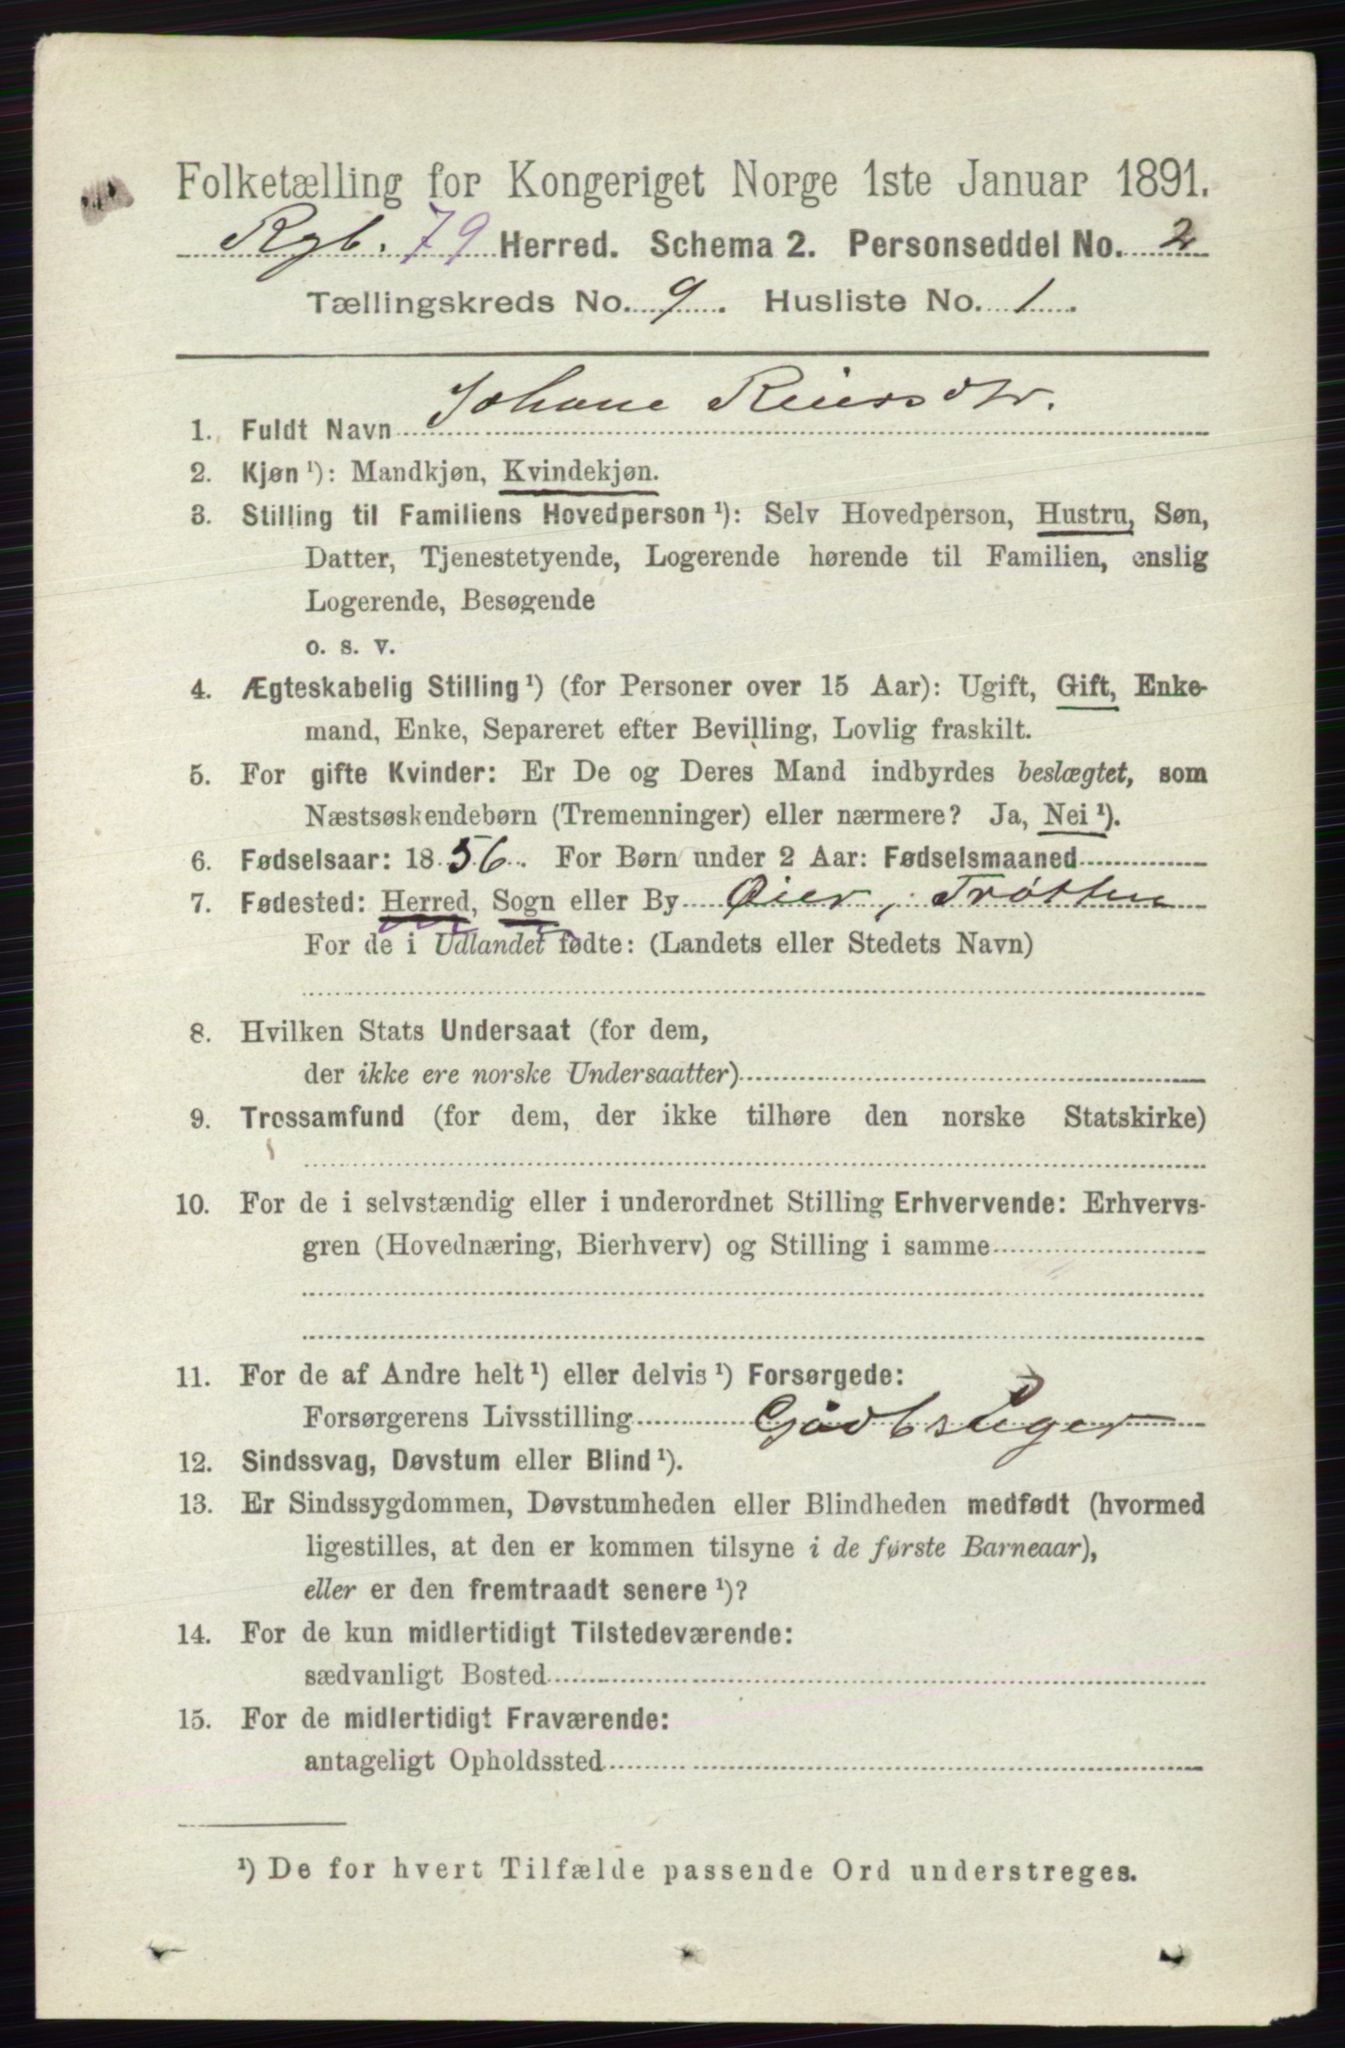 Folketælling for Kongeriget Norge 1ste Januar 1891.
Rgb. 79 Herred. Schema 2. Personseddel No. 2
Tællingskreds No. 9. Husliste No. 1.
1. Fuldt Navn Johane Reiersdtr.
2. Kjøn ¹): Mandkjøn, Kvindekjøn.
3. Stilling til Familiens Hovedperson ¹): Selv Hovedperson, Hustru, Søn,
Datter, Tjenestetyende, Logerende hørende til Familien, enslig
Logerende, Besøgende
o. s. v.
4. Ægteskabelig Stilling ¹) (for Personer over 15 Aar): Ugift, Gift, Enke-
mand, Enke, Separeret efter Bevilling, Lovlig fraskilt.
5. For gifte Kvinder: Er De og Deres Mand indbyrdes beslægtet, som
Næstsøskendebørn (Tremenninger) eller nærmere? Ja, Nei ¹).
6. Fødselsaar: 1856. For Børn under 2 Aar: Fødselsmaaned
7. Fødested: Herred, Sogn eller By Øier, Trøtten
For de i Udlandet fødte: (Landets eller Stedets Navn)
8. Hvilken Stats Undersaat (for dem,
der ikke ere norske Undersaatter)
9. Trossamfund (for dem, der ikke tilhøre den norske Statskirke)
10. For de i selvstændig eller i underordnet Stilling Erhvervende: Erhvervs-
gren (Hovednæring, Bierhverv) og Stilling i samme
11. For de af Andre helt ¹) eller delvis ¹) Forsørgede:
Forsørgerens Livsstilling Gaardbruger
12. Sindssvag, Døvstum eller Blind ¹).
13. Er Sindssygdommen, Døvstumheden eller Blindheden medfødt (hvormed
ligestilles, at den er kommen tilsyne i de første Barneaar),
eller er den fremtraadt senere ¹)?
14. For de kun midlertidigt Tilstedeværende:
sædvanligt Bosted
15. For de midlertidigt Fraværende:
antageligt Opholdssted
¹) De for hvert Tilfælde passende Ord understreges.